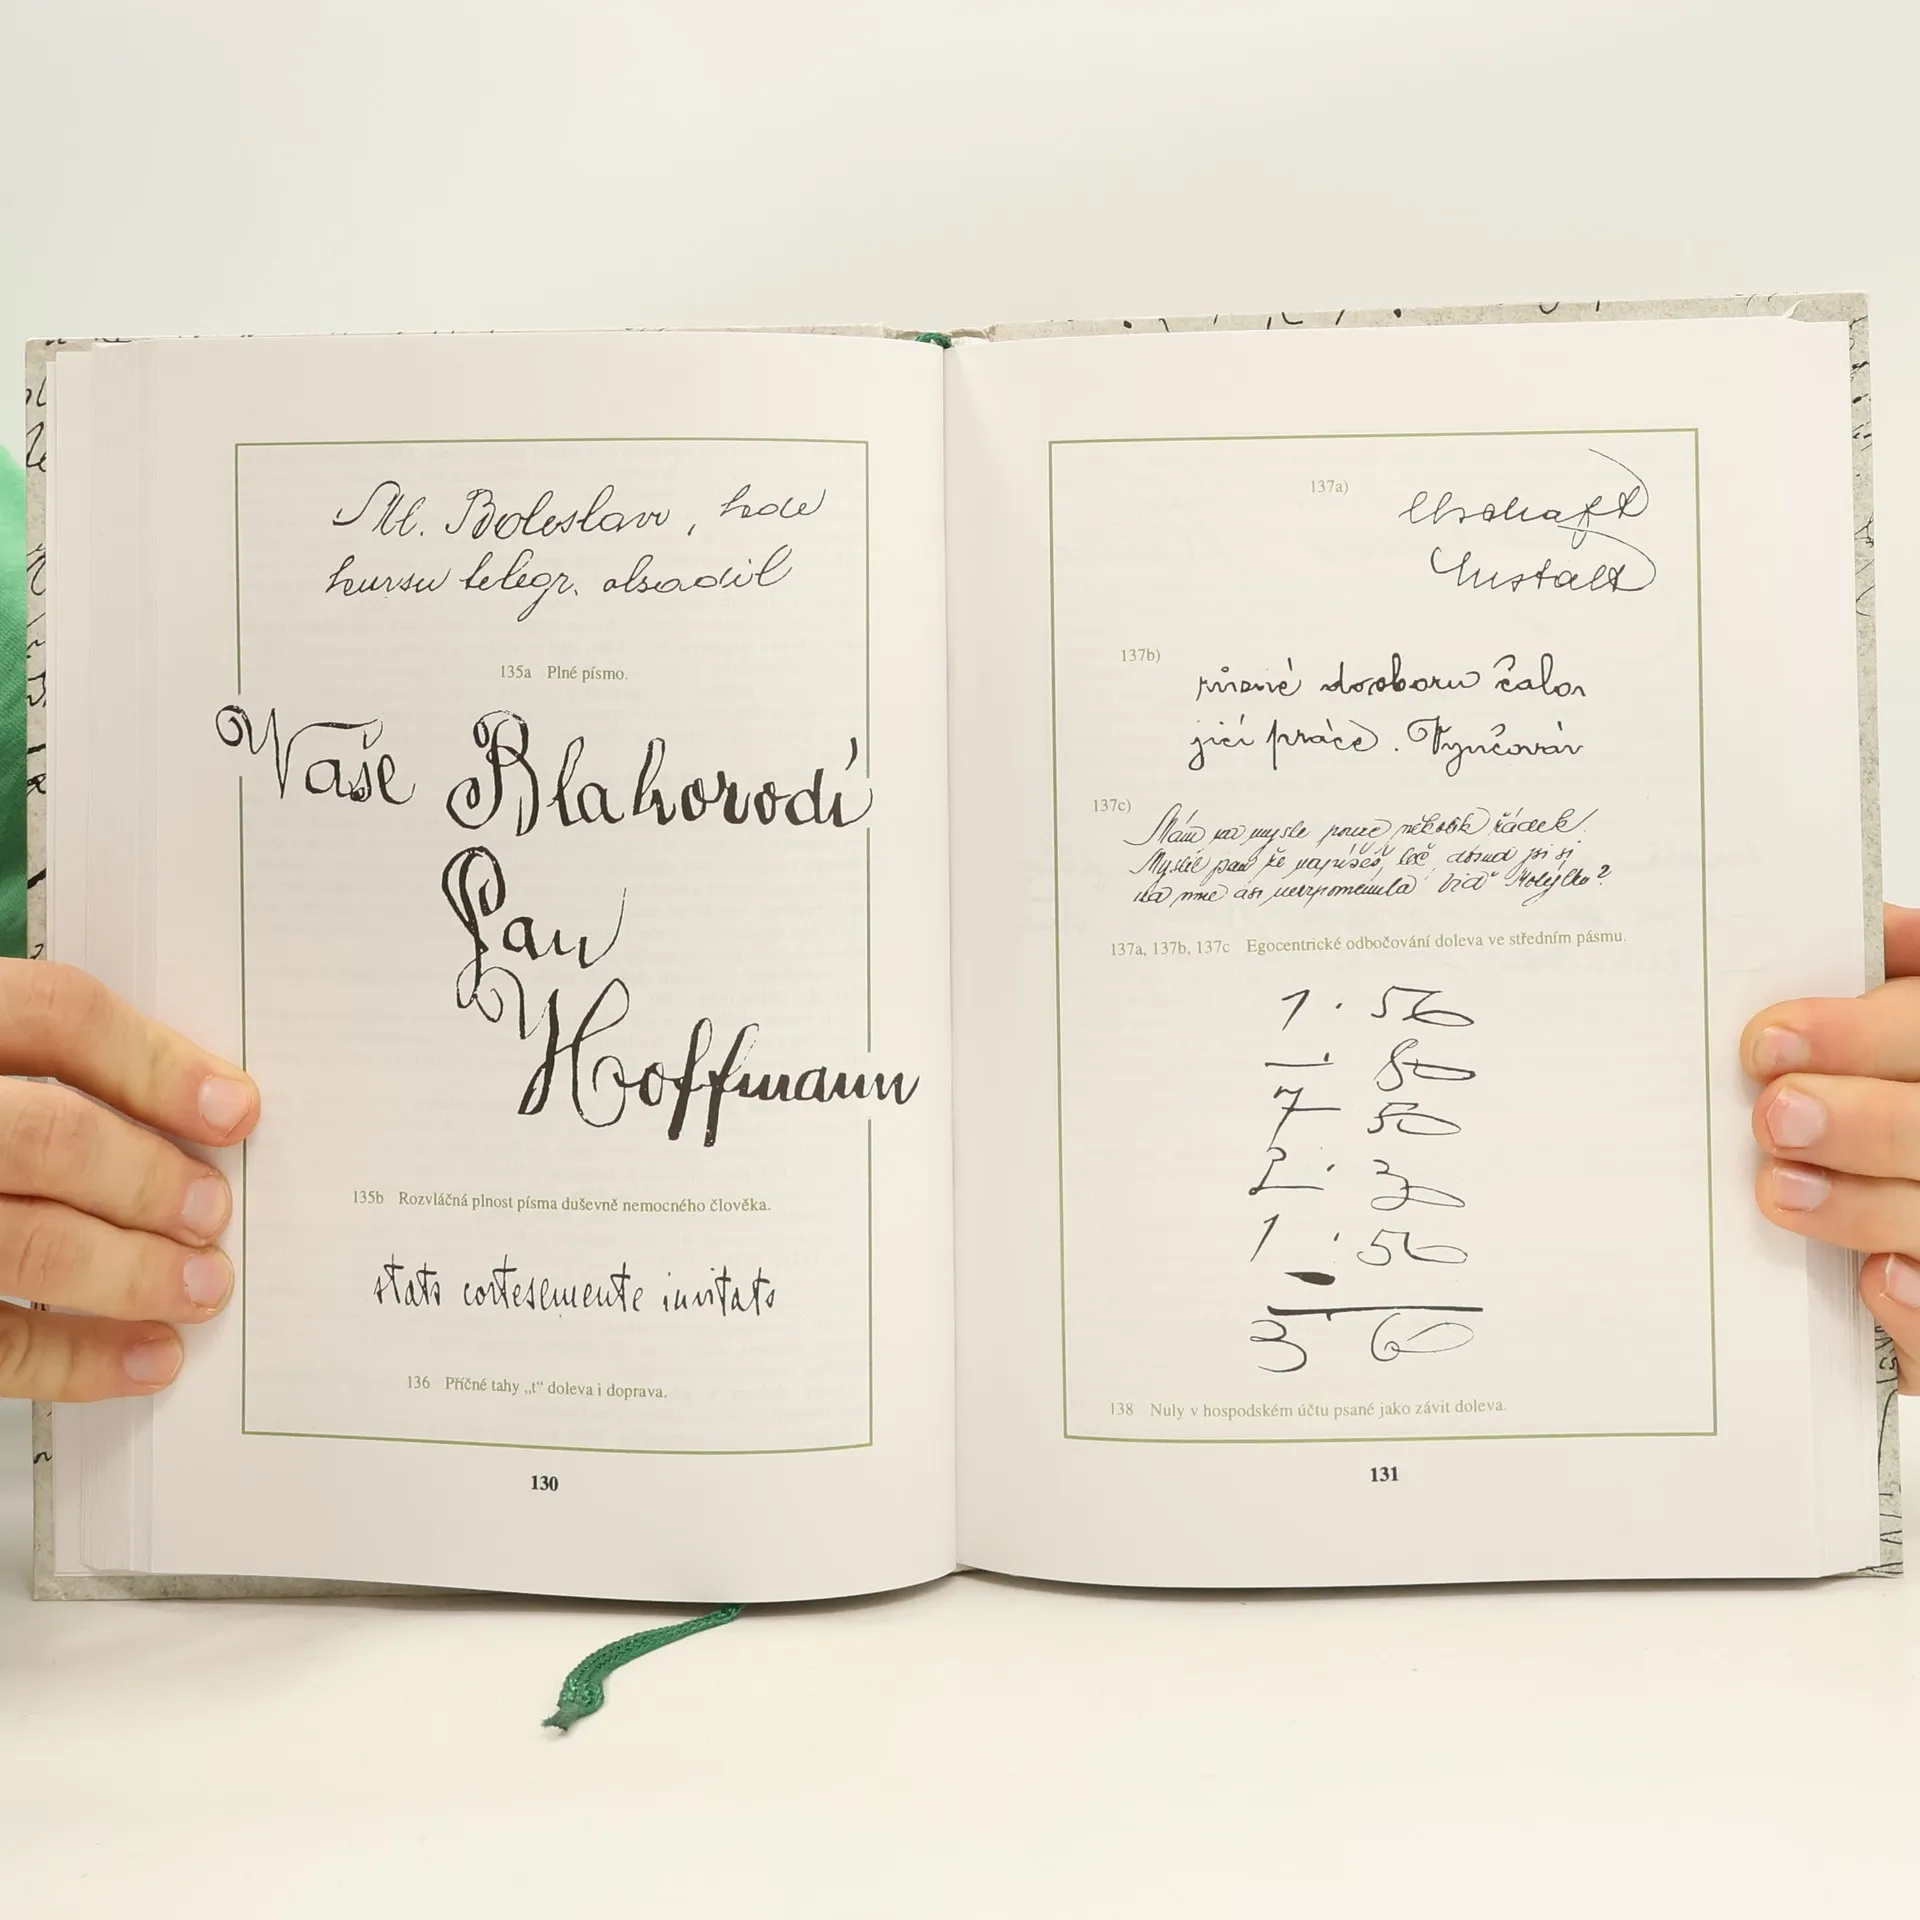 Ml. Boleslavi, kde
kursu telegr. obsadil
135a Plné písmo.
Vaše Blahorodí
Pan
Hoffmann
135b Rozvláčná plnost písma duševně nemocného člověka.
stato cortesemente invitato
136 Příčné tahy „t“ doleva i doprava.
130
137a)
llschaft
Anstalt
137b)
různé do oboru čalou
jící práce. Vyučován
137c)
Mám na mysle pouze několik řádek.
Myslil jsem že napíšeš, leč dosud jsi si
na mne asi nevzpomenula viď
137a, 137b, 137c Egocentrické odbočování doleva ve středním pásmu.
1 . 50
— . 80
7 50
2 . 30
1 . 50
3 60
138 Nuly v hospodském účtu psané jako závit doleva.
131